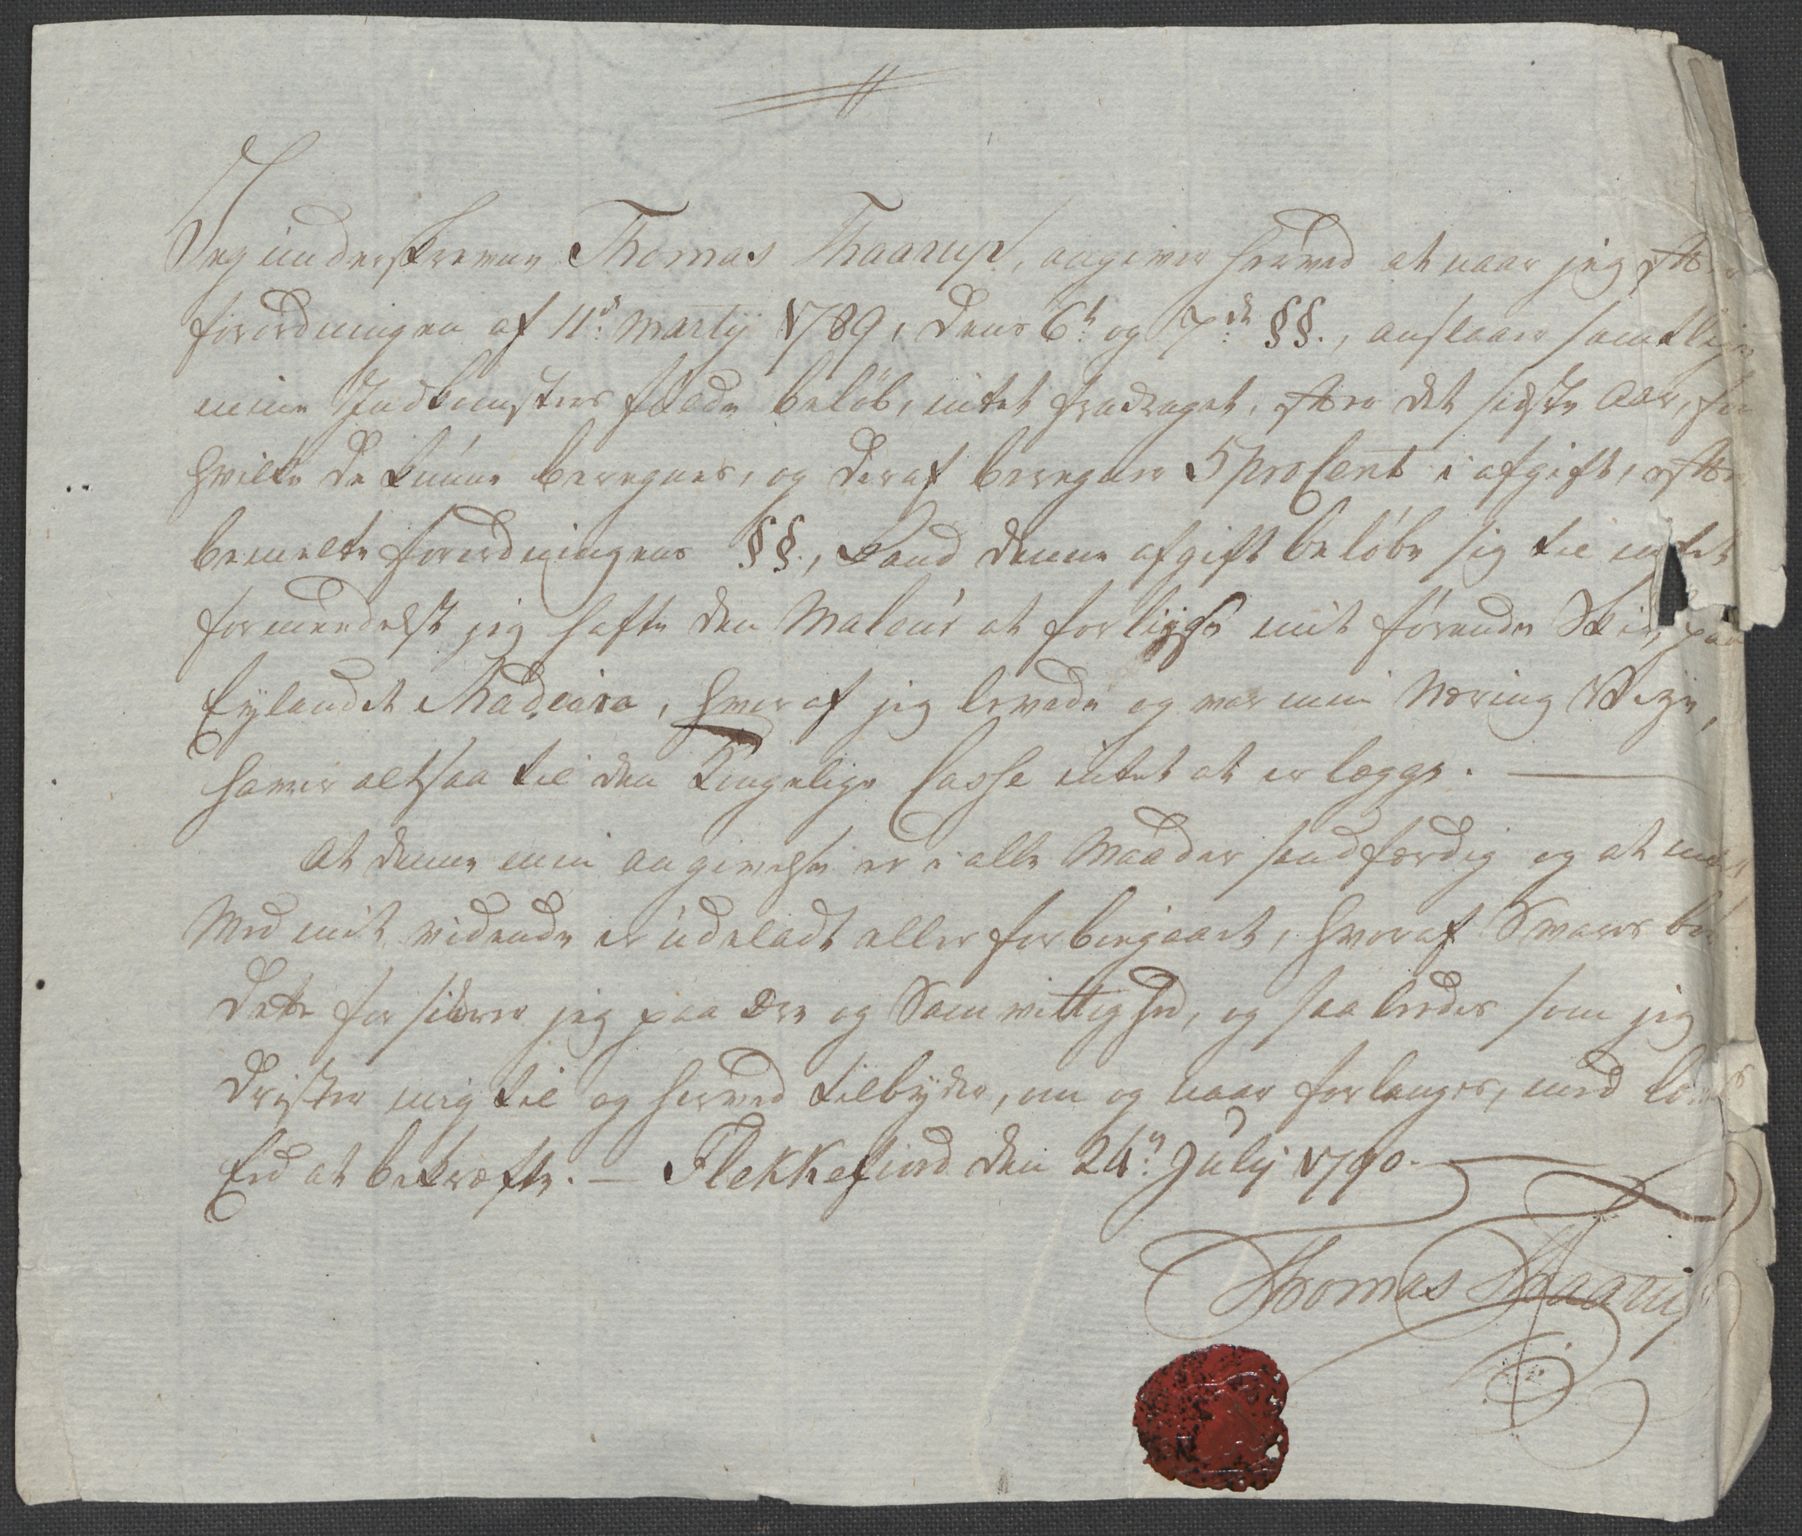 Jeg underskrevne Thomas Thaarup, angiver herved at naar jeg efter
forordningen af 11te Martij 1789, dens 6te og 7de §§., anslaaer samtlige
mine Indkomsters fulde beløb, intet fradraget, efter det sidste Aar, for
hvilke de kunne beregnes, og deraf beregner 5 proCent i afgift, efter
bemelte forordningens §§., kand denne afgift beløbe sig til intet
formeedelst jeg hafte den Maleur at forliise mit førende Skib, paa
Eylandet Madeira, hvoraf jeg levede og var min Næring Veye,
haver altsaa til den Kongelige Casse intet at erlægge. —
At denne min angivelse er i alle Maader sandfærdig og at intet
Med mit vidende er udeladt eller forbiegaaet, hvoraf Svares bør
dette forsikrer jeg paa Ære og Samvittighed, og saaledes som jeg
drister mig til og herved tilbyder, om og naar forlanges, med
Eed at bekræfte. — Flekkefiord den 24n July 1790.
Thomas Thaarup